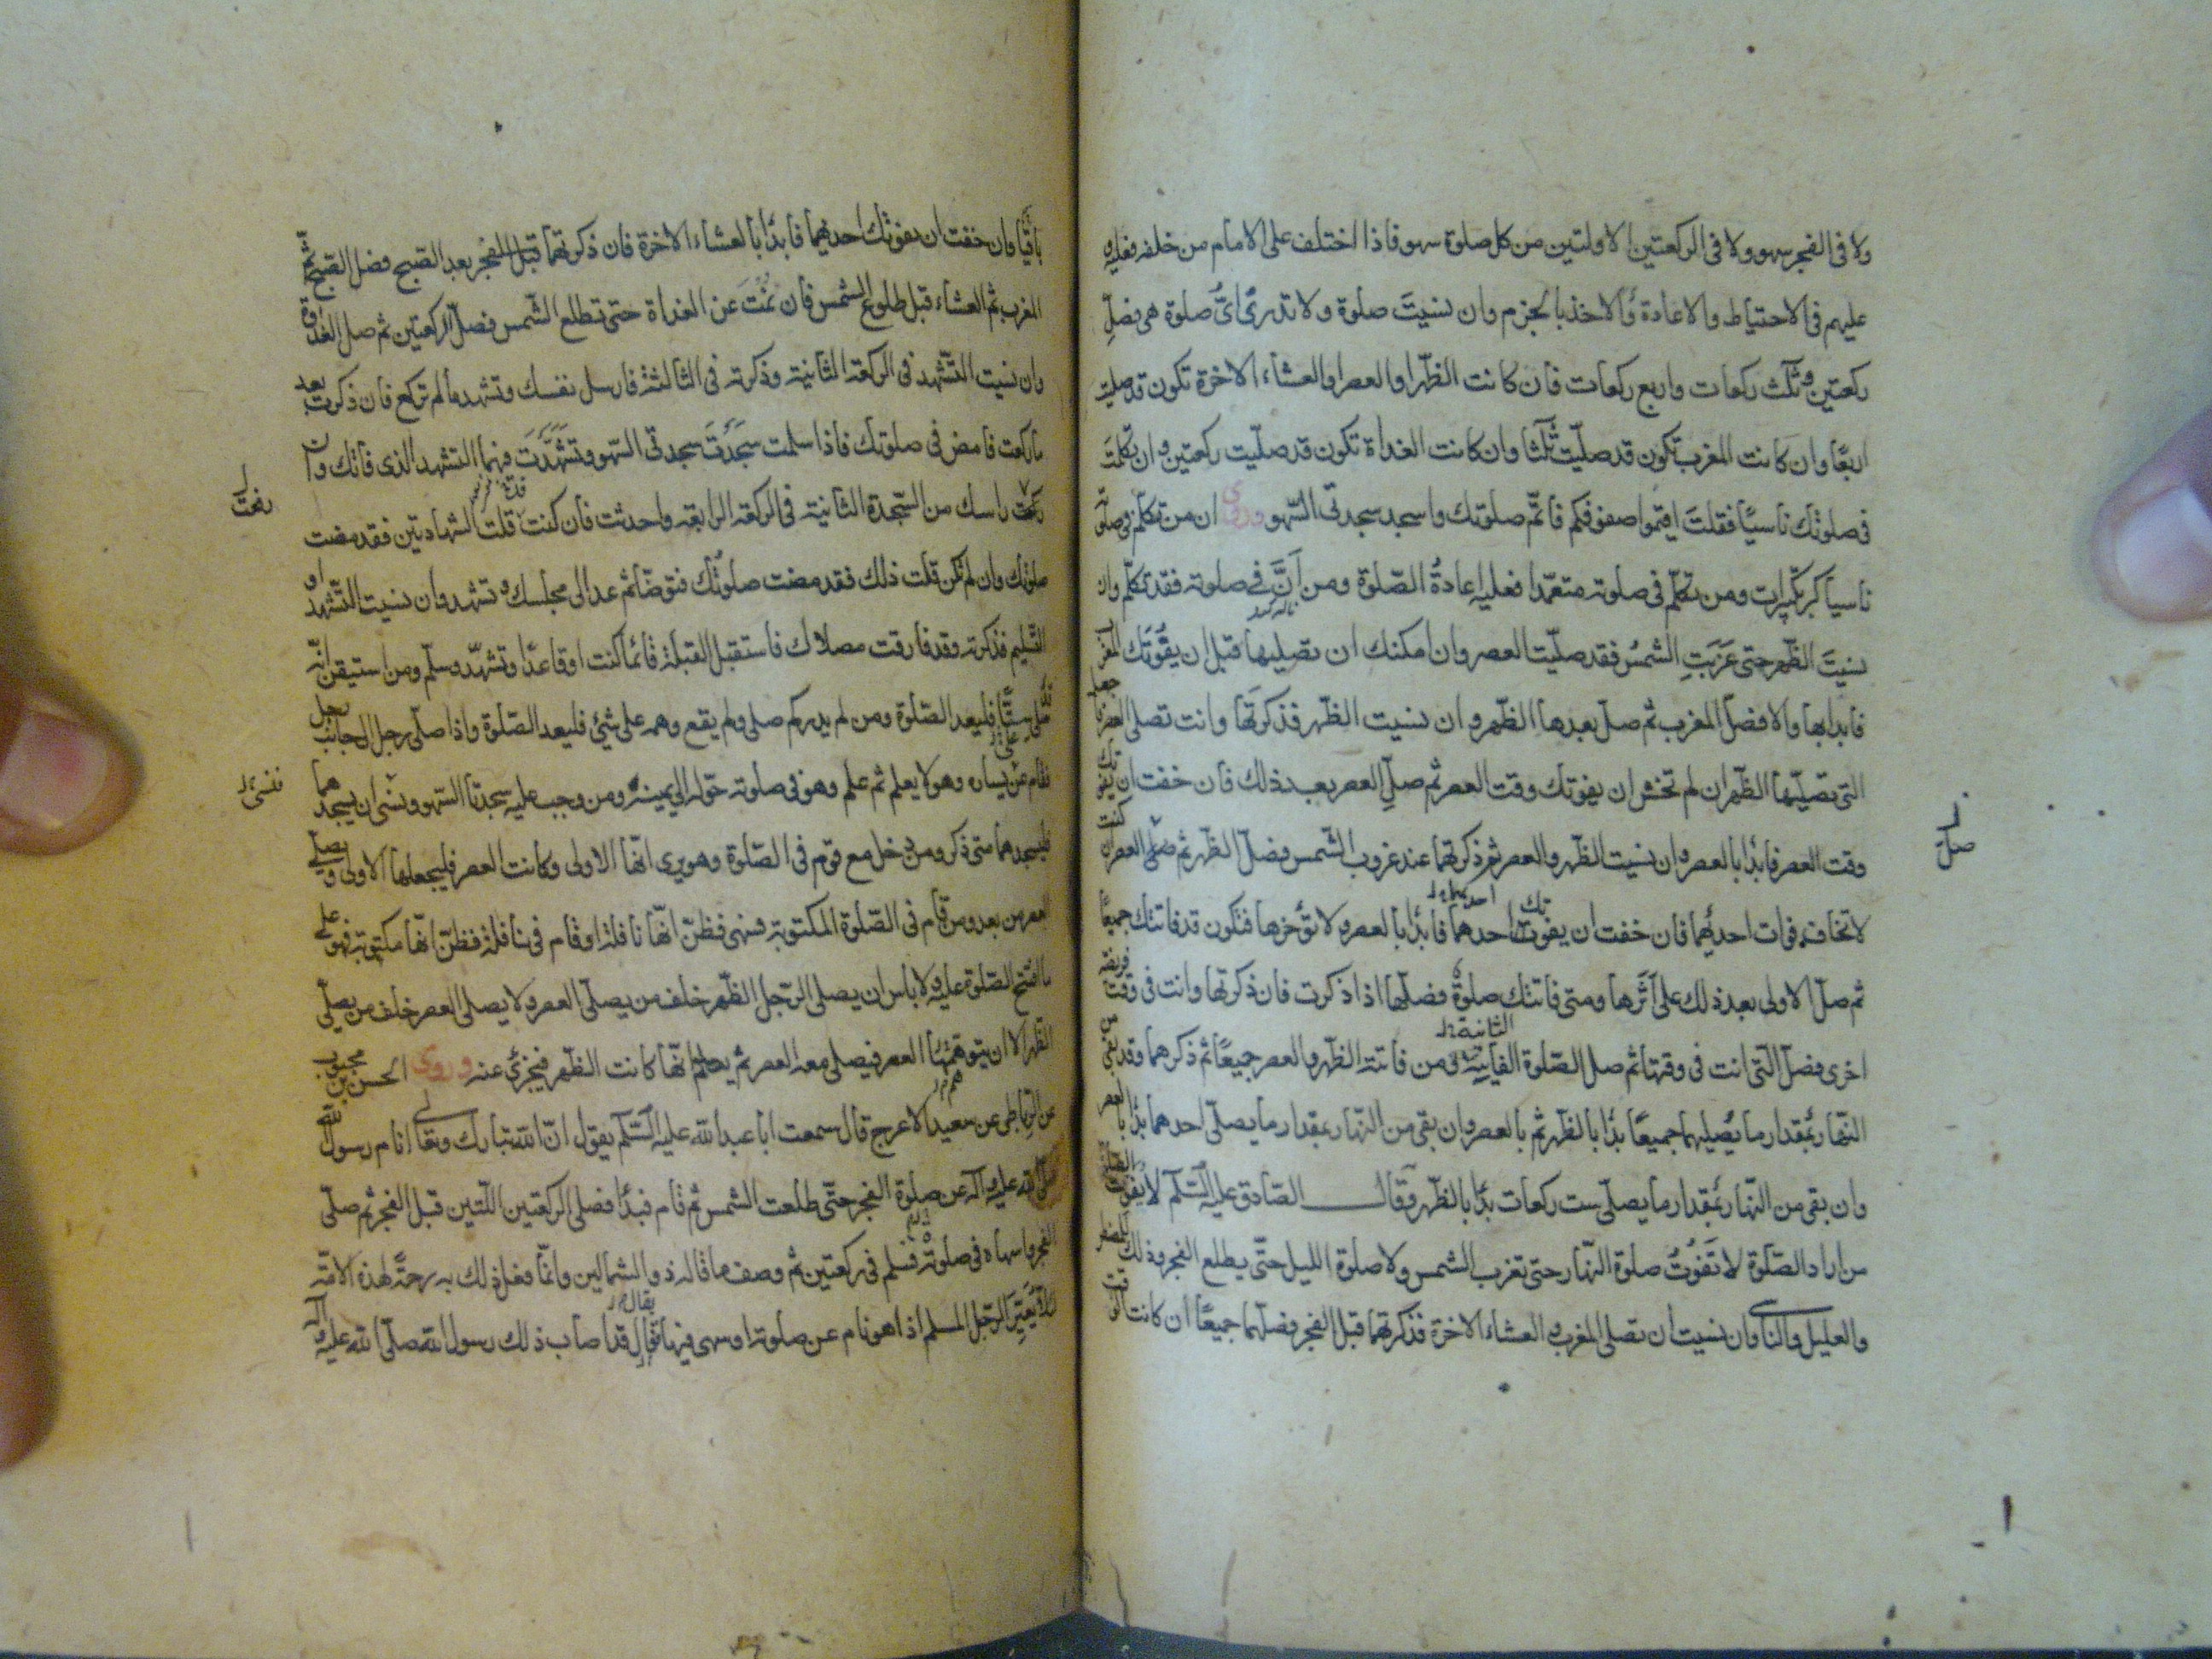 ولا فى الفجر سهو ولا فى الركعتين الاولتين من كل صلوة سهو فاذا اختلف على الامام من خلفه فعليه
عليهم فى الاحتياط والاعادة والاخذ بالجزم وان نسيتَ صلوة ولا تدرى اىُّ صلوة هى فصلِّ
ركعتين وثلث ركعات واربع ركعات فان كانت الظهر او العصر او العشاء الاخرة تكون قد صليت
اربعًا وان كانت المغرب تكون قد صليّت ثلثا وان كانت الغداة تكون قد صلّيت ركعتين وان تكلمت
فى صلوتك ناسيًا فقلتَ اقيموا صفوفكم فاتمّ صلوتك واسجد سجدتى السّهو وروى ان من تكلّم فى صلوته
ناسيا كبر تكبيرات ومن تكلّم فى صلوته متعمّدا فعليه اعادةُ الصّلوة ومن اَنَّ فى صلوته فقد تكلّم وان
نسيتَ الظّهر حتى غَرَبَتِ الشمسُ فقد صليّت العصر وان امكنك ان تصليها قبل ان يفُوتَك المغرب
فابدا بها والا فصلّ المغرب ثم صلّ بعدها الظّهر وان نسيت الظّهر فذكرتَها وانت تصلى العصر فاجعل
التى تصلّيها الظّهر ان لم تخش ان يفوتك وقت العصر ثم صلِّ العصر بعد ذلك فان خفت ان يفوتك
وقت العصر فابدأ بالعصر وان نسيت الظّهر والعصر ثم ذكرتهما عند غروب الشّمس فصلّ الظّهر ثم صلّ العصر ان كنت
صلّ
لا تخاف فوات احديهما فان خفت ان يفوتك احدهما فابدأ بالعصر ولا تؤخرها فتكون قد فاتتك جميعًا
ثم صلّ الاولى بعد ذلك على اَثَرها ومتى فاتتك صلوةٌ فصلّها اذا ذكرت فان ذكرتها وانت فى وقت فريضة
اخرى فصلّ الّتى انت فى وقتها ثم صل الصّلوة الفايتة ومن فاتته الظّهر والعصر جميعًا ثم ذكرهما وقد بقى من
النّهار بمُقدار ما يُصليهما جميعًا بدأ بالظّهر ثم بالعصر وان بقى من النّهار بمقدار ما يصلّى احدهما بدأ بالعصر
وان بقى من النّهار بمُقدار ما يصلّى ست ركعات بدأ بالظّهر وقال الصّادق عليه السّلم لا يفوت
من اراد الصّلوة لا تَفوُتُ صلوة النّهار حتى تغرب الشمس ولا صلوة الليل حتّى يطلع الفجر وذلك للمضطر
والعليل والناسى وان نسيت ان تصلى المغرب والعشاء الاخرة فذكرتهما قبل الفجر فصلّهما جميعًا ان كانت الوقت
باقيًا وان خفت ان يفوتك احديهما فابدأ بالعشاء الاخرة فان ذكرتهما قبل الفجر بعد الصّبح فصل الصّبح ثم
المغرب ثم العشاء قبل طلوع الشّمس فان نمتَ عن الغداة حتى تطلع الشّمس فصلّ الركعتين ثم صل الغداة
وان نسيت التّشهد فى الركعة الثانية وذكرته فى الثالثة فارسل نفسك وتشهد ما لم تركع فان ذكرت بعد
ما ركعت فامض فى صلوتك فاذا سلمت سَجَدْتَ سجدتى السّهو وتشهّدتَ فيهما التشهد الذى فاتك وان
رفعت راسك من السّجدة الثانية فى الركعة الرابعة واحدثت فان كنت قلت الشهادتين فقد مضت
رفعت
صلوتك وان لم تكن قلت ذلك فقد مضت صلوتُك فتوضّأ ثم عد الى مجلسك وتشهد وان نسيت التّشهد او
التّسليم فذكرته وقد فارقت مصلاك فاستقبل القبلة قائما كنت او قاعدًا وتشهّد وسلّم ومن استيقن انّه
صلّى ستًّا فليعد الصّلوة ومن لم يدر كم صلى ولم يقع وهمه على شئ فليعد الصّلوة واذا صلّى رجل الى جانب رجل
فقام عن يساره وهو لا يعلم ثم علم وهو فى صلوته حوّله الى يمينه ومن وجب عليه سجدتا السّهو ونسى ان يسجدهما
فنسى
فليسجدهما متى ذكر ومن دخل مع قوم فى الصّلوة وهو يرى انّها الاولى وكانت العصر فليجعلها الاولى ويصلّى
العصر من بعد ومن قام فى الصّلوة المكتوبة فسهى فظنّ انّها نافلة او قام فى نافلة فظنّ انها مكتوبة فهو على
ما افتتح الصّلوة عليه ولا باس ان يصلى الرّجل الظّهر خلف من يصلّى العصر ولا يصلى العصر خلف من يصلّى
الظهر الا ان يتوهّمها العصر فيصلى معه العصر ثم يعلم انّها كانت الظّهر فيجزئ عنه وروى الحسن بن محبوب
عن الرّباطى عن سعيد الاعرج قال سمعت ابا عبد الله عليه السّلم يقول انّ الله تبارك وتعالى انام رسول الله
صلّى الله عليه وآله عن صلوة الفجر حتّى طلعت الشمس ثم قام فبدأ فصلى الركعتين اللّتين قبل الفجر ثم صلّى
الفجر واسهاه فى صلوته فسلم فى ركعتين ثم وصف ما قاله ذو الشمالين وانّما فعل ذلك به رحمة لهذه الامّة
لئلا يُعَيَّر الرّجل المسلم اذا هو نام عن صلوته او سهى فيها فقال قد اصاب ذلك رسول الله صلّى الله عليه وآله